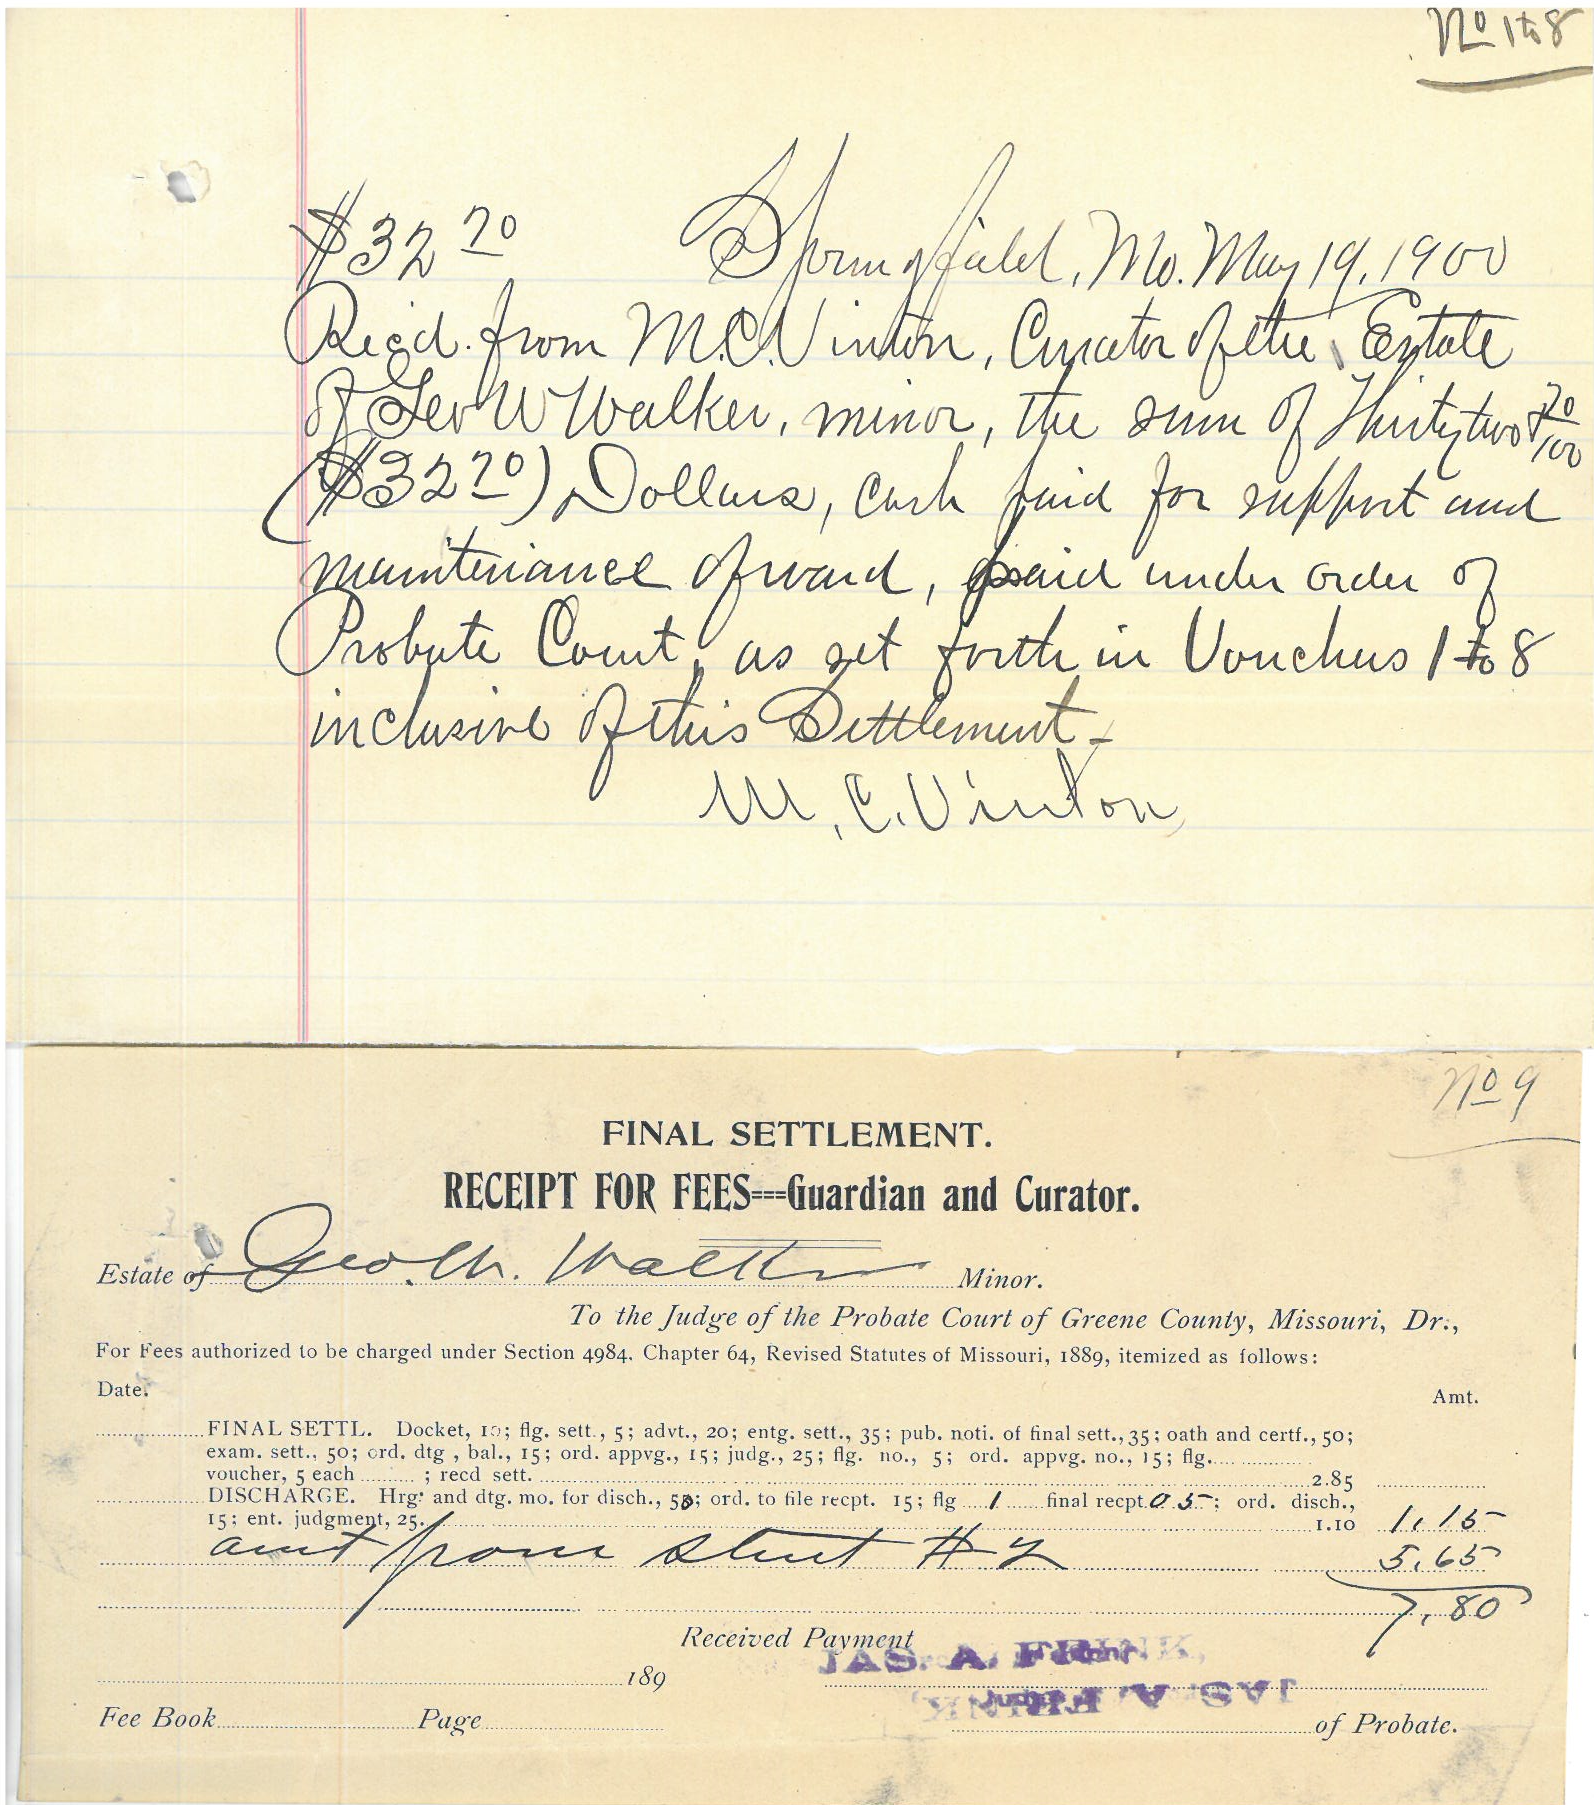 No 1 to 8
$32 20 Springfield, Mo. May 19, 1900
Rec'd. from M.C. Vinton, Curator of the Estate
of Geo W Walker, minor, the sum of Thirty two & 20/100
($32 20) Dollars, cash paid for support and
maintenance of ward, paid under order of
Probate Court, as set forth in Vouchers 1 to 8
inclusive of this Settlement-
M. C. Vinton
No 9
FINAL SETTLEMENT.
RECEIPT FOR FEES---Guardian and Curator.
Estate of Geo. W. Walker Minor.
To the Judge of the Probate Court of Greene County, Missouri, Dr.,
For Fees authorized to be charged under Section 4984, Chapter 64, Revised Statutes of Missouri, 1889, itemized as follows:
Date. Amt.
FINAL SETTL. Docket, 10; flg. sett., 5; advt., 20; entg. sett., 35; pub. noti. of final sett., 35; oath and certf., 50;
exam. sett., 50; ord. dtg , bal., 15; ord. appvg., 15; judg., 25; flg. no., 5; ord. appvg. no., 15; flg.
voucher, 5 each ; recd sett. 2.85
DISCHARGE. Hrg. and dtg. mo. for disch., 50; ord. to file recpt. 15; flg 1 final recpt. 05; ord. disch.,
15; ent. judgment, 25. 1.10 1.15
amt from stmt #2 5.65
7.80
Received Payment
JAS. A. FRINK,
189
JAS. A. FRINK
Fee Book Page of Probate.